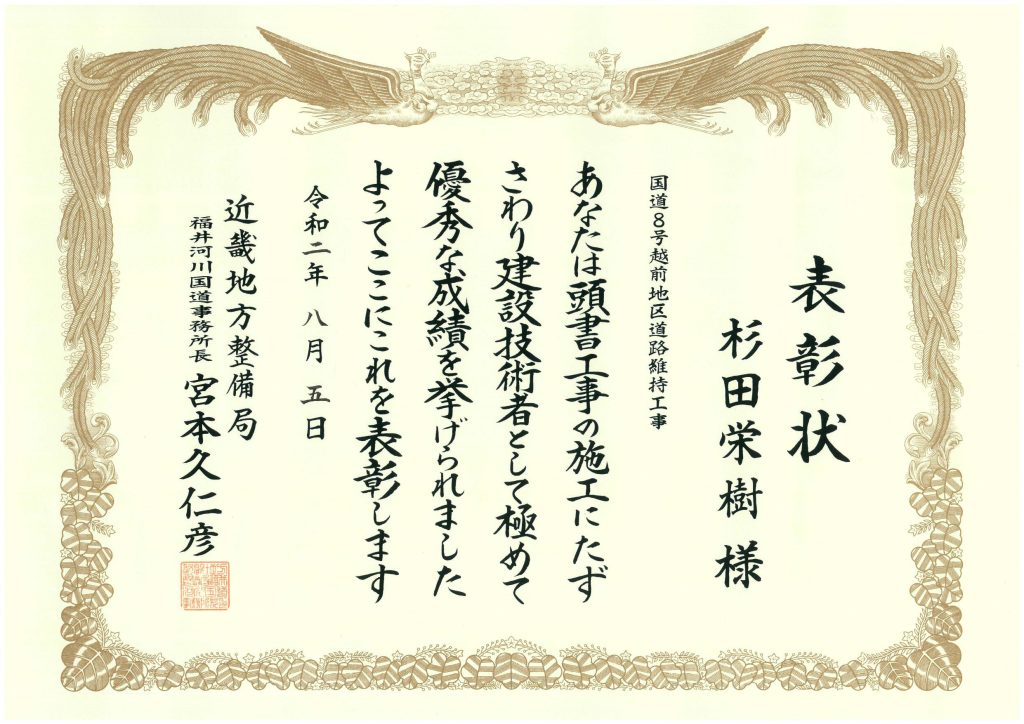 表彰状
杉田栄樹 様
国道8号越前地区道路維持工事
あなたは頭書工事の施工にたず
さわり建設技術者として極めて
優秀な成績を挙げられました
よってここにこれを表彰します
令和二年 八月 五日
近畿地方整備局
福井河川国道事務所長 宮本久仁彦